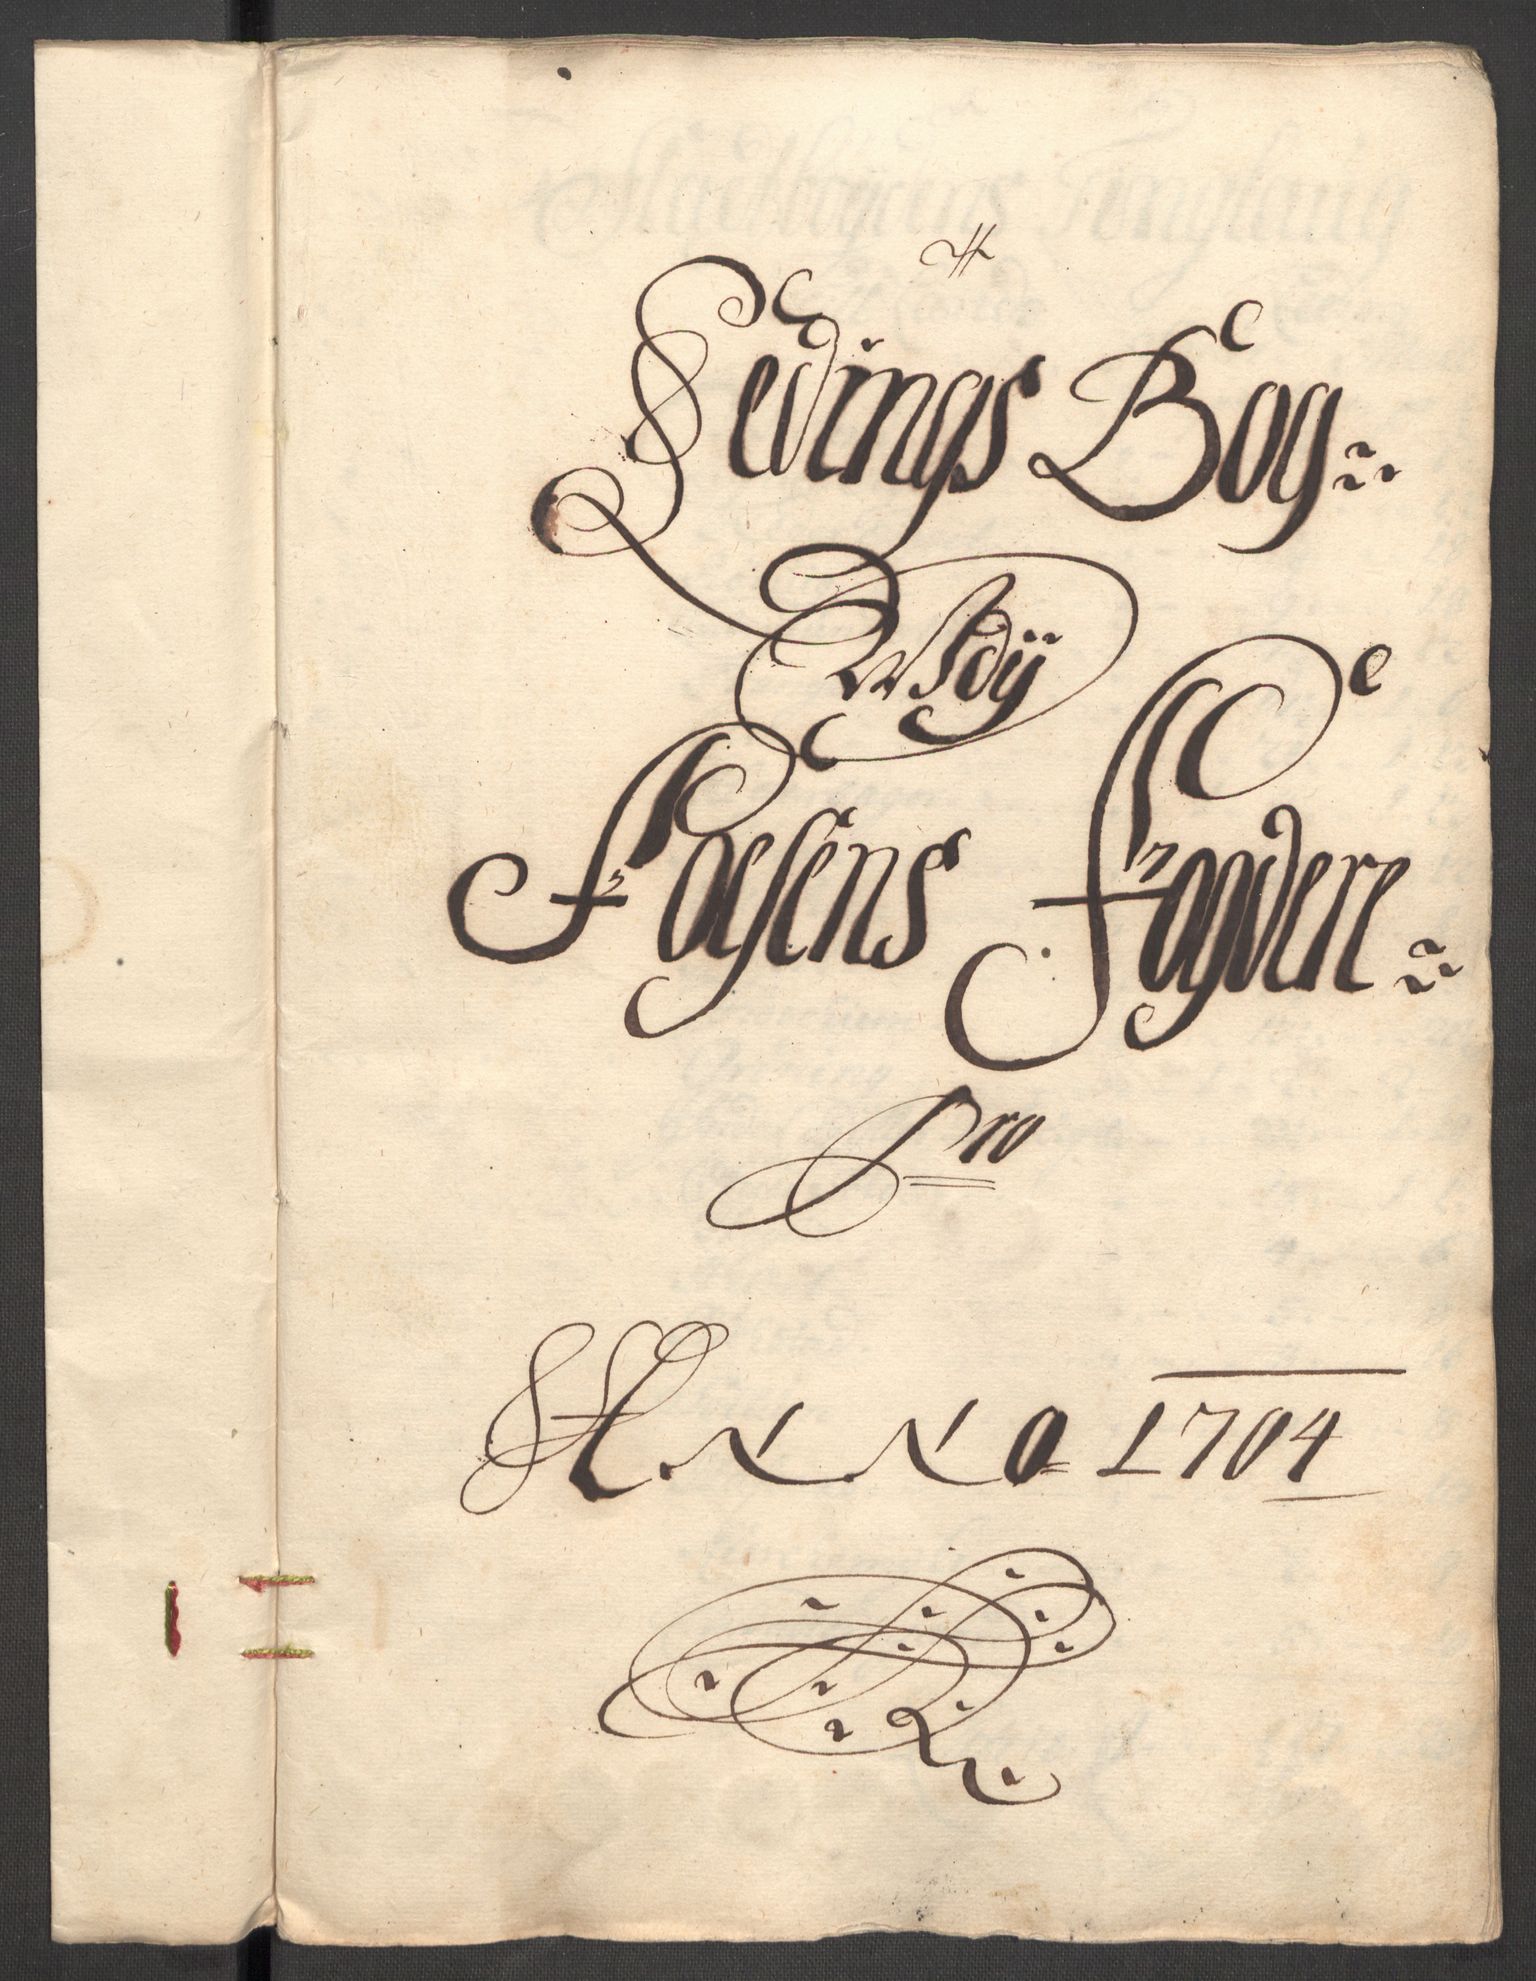 Ledings Bog
Udÿ
Fosens Fogdere
Pro
Anno 1704